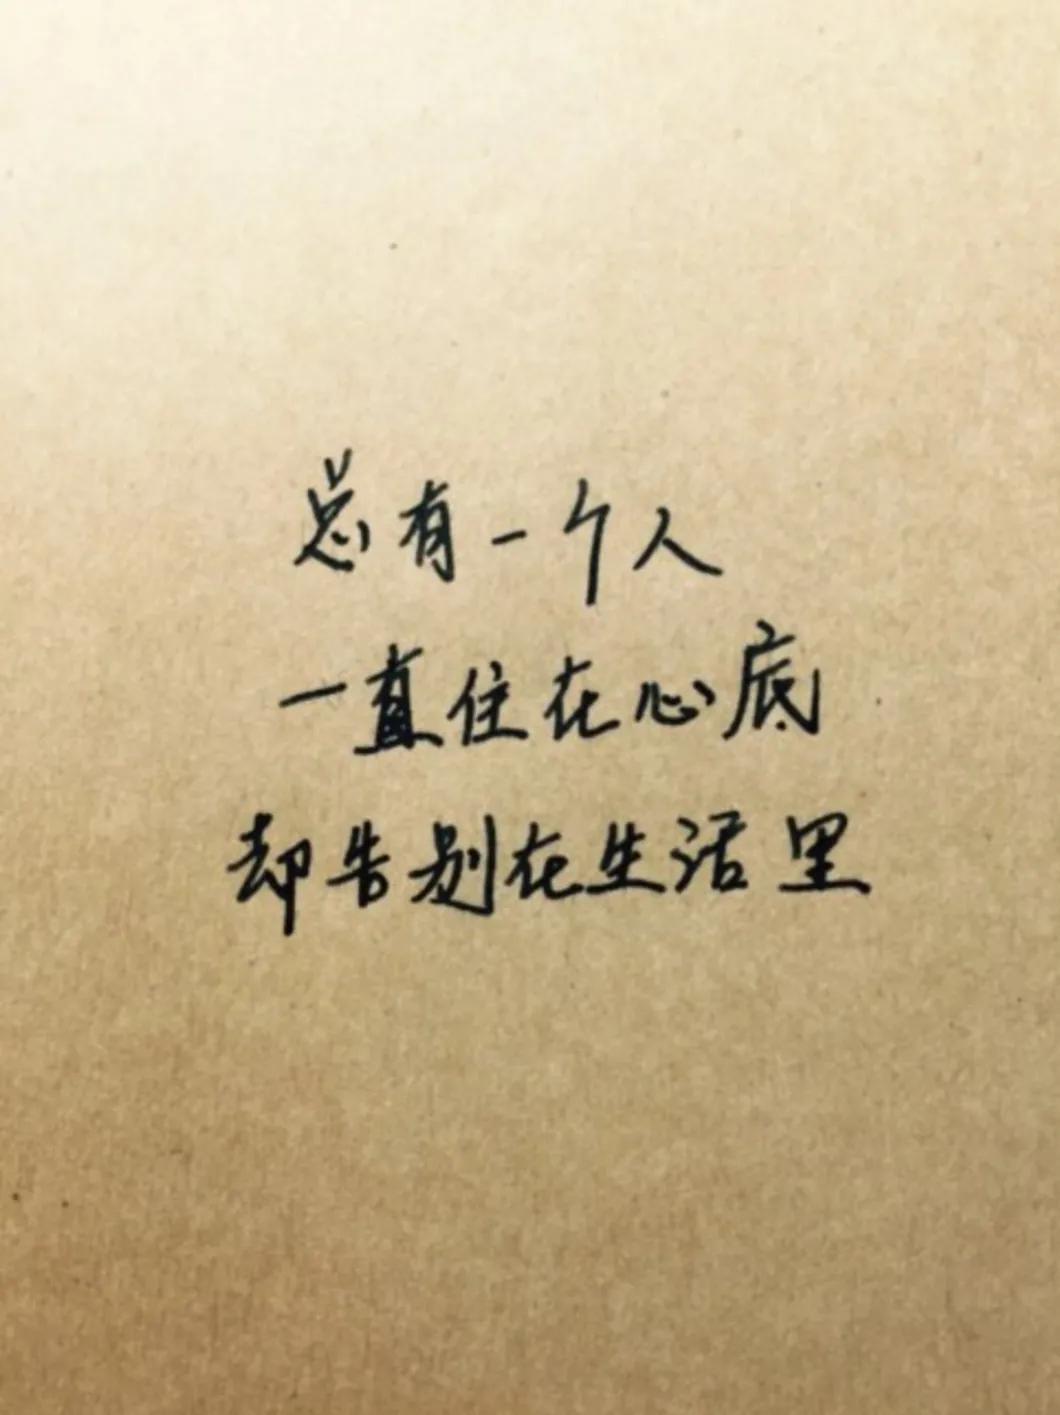 总有一个人
一直住在心底
却告别在生活里